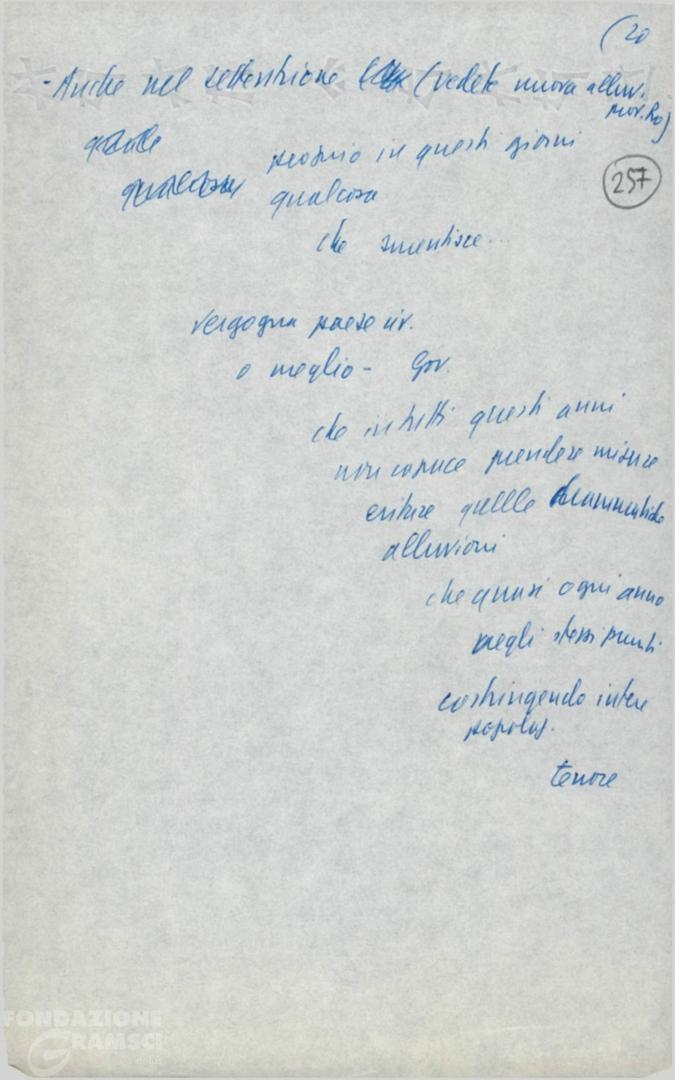 (20
- Anche nel settentrione (vedete nuova alluv.
prov. Ro)
proprio in questi giorni
257
qualcosa qualcosa
che smentisce...
vergogna paese civ.
o meglio - Gov.
che in tutti questi anni
non capace prendere misure
evitare quelle drammatiche
alluvioni
che quasi ogni anno
negli stessi punti
costringendo intere
popolaz.
terrore
FONDAZIONE
GRAMSCI